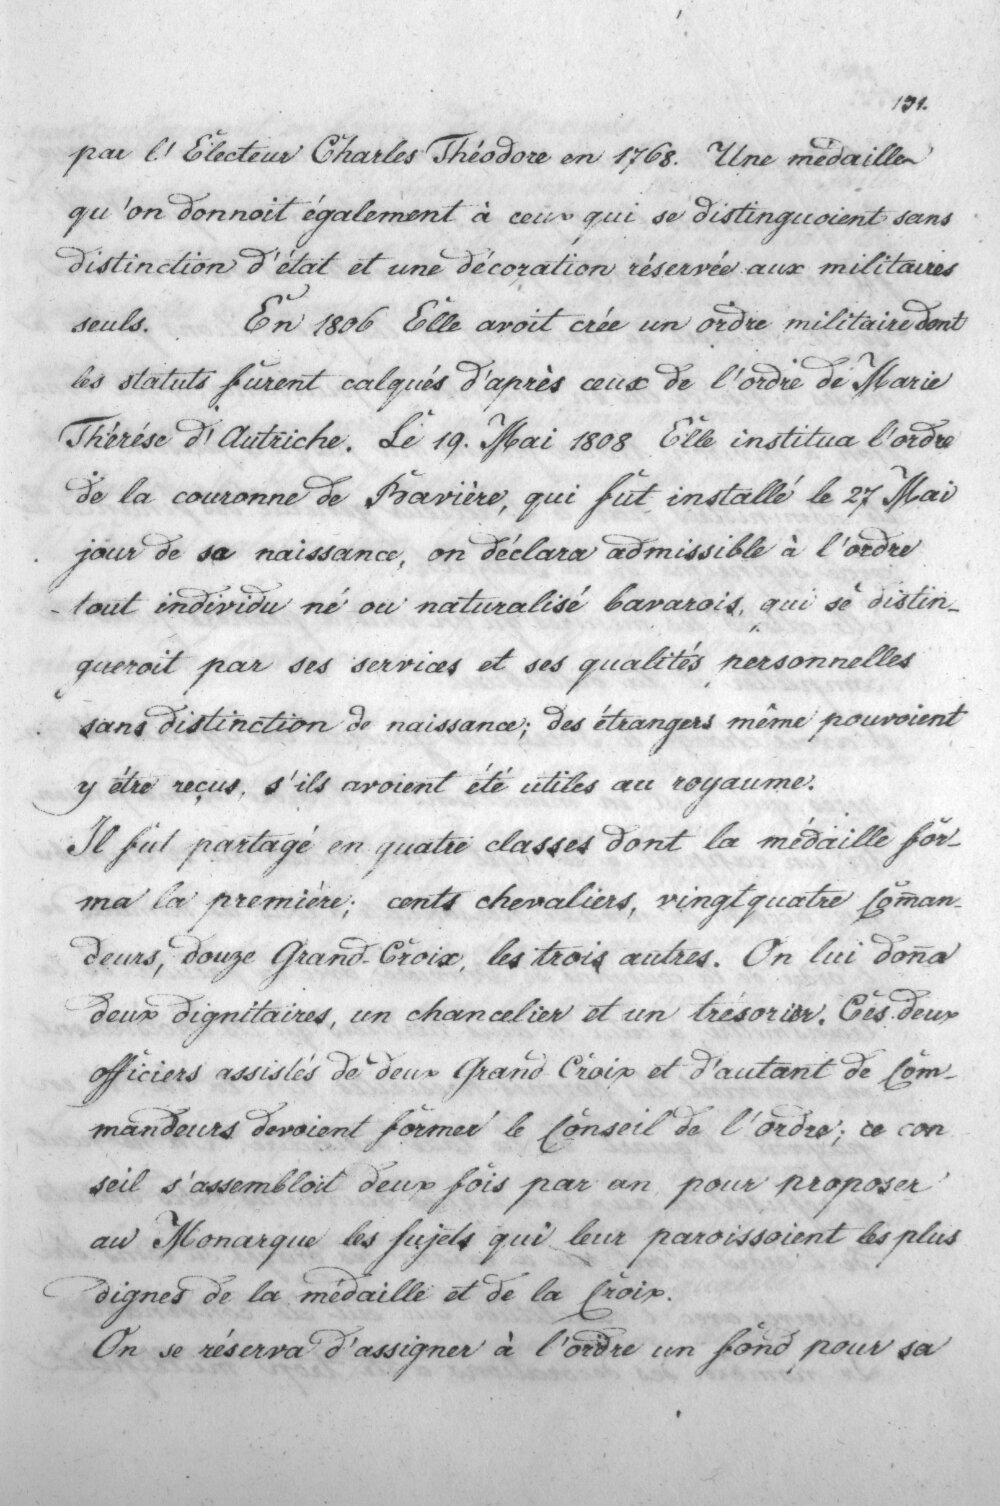 131.
par l'Electeur Charles Théodore en 1768. Une médaille
qu'on donnoit également à ceux qui se distinguoient sans
distinction d'état et une décoration réservée aux militaires
seuls. En 1806 Elle avoit crée un ordre militaire dont
les statuts furent calqués d'après ceux de l'ordre de Marie
Thérése d'Autriche. Le 19. Mai 1808 Elle institua l'ordre
de la couronne de Bavière, qui fut installé le 27 Mai
jour de sa naissance, on déclara admissible à l'ordre
tout individu né ou naturalisé bavarois, qui se distin-
gueroit par ses services et ses qualités personnelles
sans distinction de naissance; des étrangers même pouvoient
y être reçus, s'ils avoient été utiles au royaume.
Il fut partagé en quatre classes dont la médaille for-
ma la première; cents chevaliers, vingtquatre Com̄an-
deurs, douze Grand-Croix, les trois autres. On lui don̄a
deux dignitaires, un chancelier et un trésorier. Ces deux
officiers assistés de deux Grand Croix et d'autant de Com-
mandeurs devoient former le Conseil de l'ordre; ce con
seil s'assembloit deux fois par an pour proposer
au Monarque les sujets qui leur paroissoient les plus
dignes de la médaille et de la Croix.
On se réserva d'assigner à l'ordre un fond pour sa